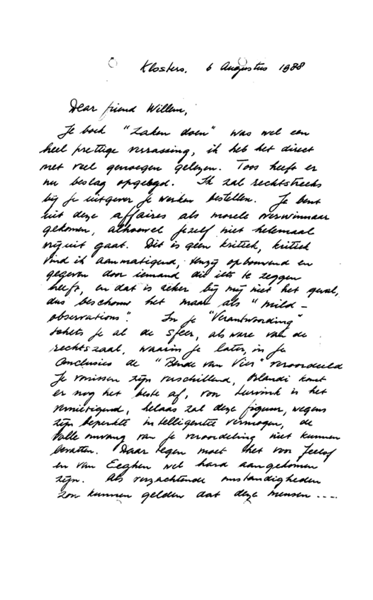 Klosters, 6 Augustus 1988
Dear friend Willem,
Je boek "Zaken doen" was wel een
heel prettige verrassing, ik heb het direct
met veel genoegen gelezen. Toos heeft er
nu beslag opgelegd. Ik zal rechtstreeks
bij je uitgever je werken bestellen. Je bent
uit deze affaires als morele overwinnaar
gekomen, alhoewel jezelf niet helemaal
vrijuit gaat. Dit is geen kritiek, kritiek
vind ik aanmatigend, tenzij opbouwend en
gegeven door iemand die iets te zeggen
heeft, en dat is zeker bij mij niet het geval,
dus beschouw het maar als "mild-
observations". In je "Verantwoording"
schets je al de sfeer, als ware van de
rechtszaal, waarin je later, in je
Conclusies de "Bende van Vier" veroordeeld
Je vonissen zijn verschillend, komt
er nog het beste af, voor is het
vernietigend, helaas zal deze figuur, wegens
zijn beperkte intelligentie vermogen, de
volle omvang van je veroordeling niet kunnen
bevatten. Daar tegen moet het voor
en van Eeghen wel hard aangekomen
zijn. Als verzachtende omstandigheden
zou kunnen gelden dat deze mensen ....